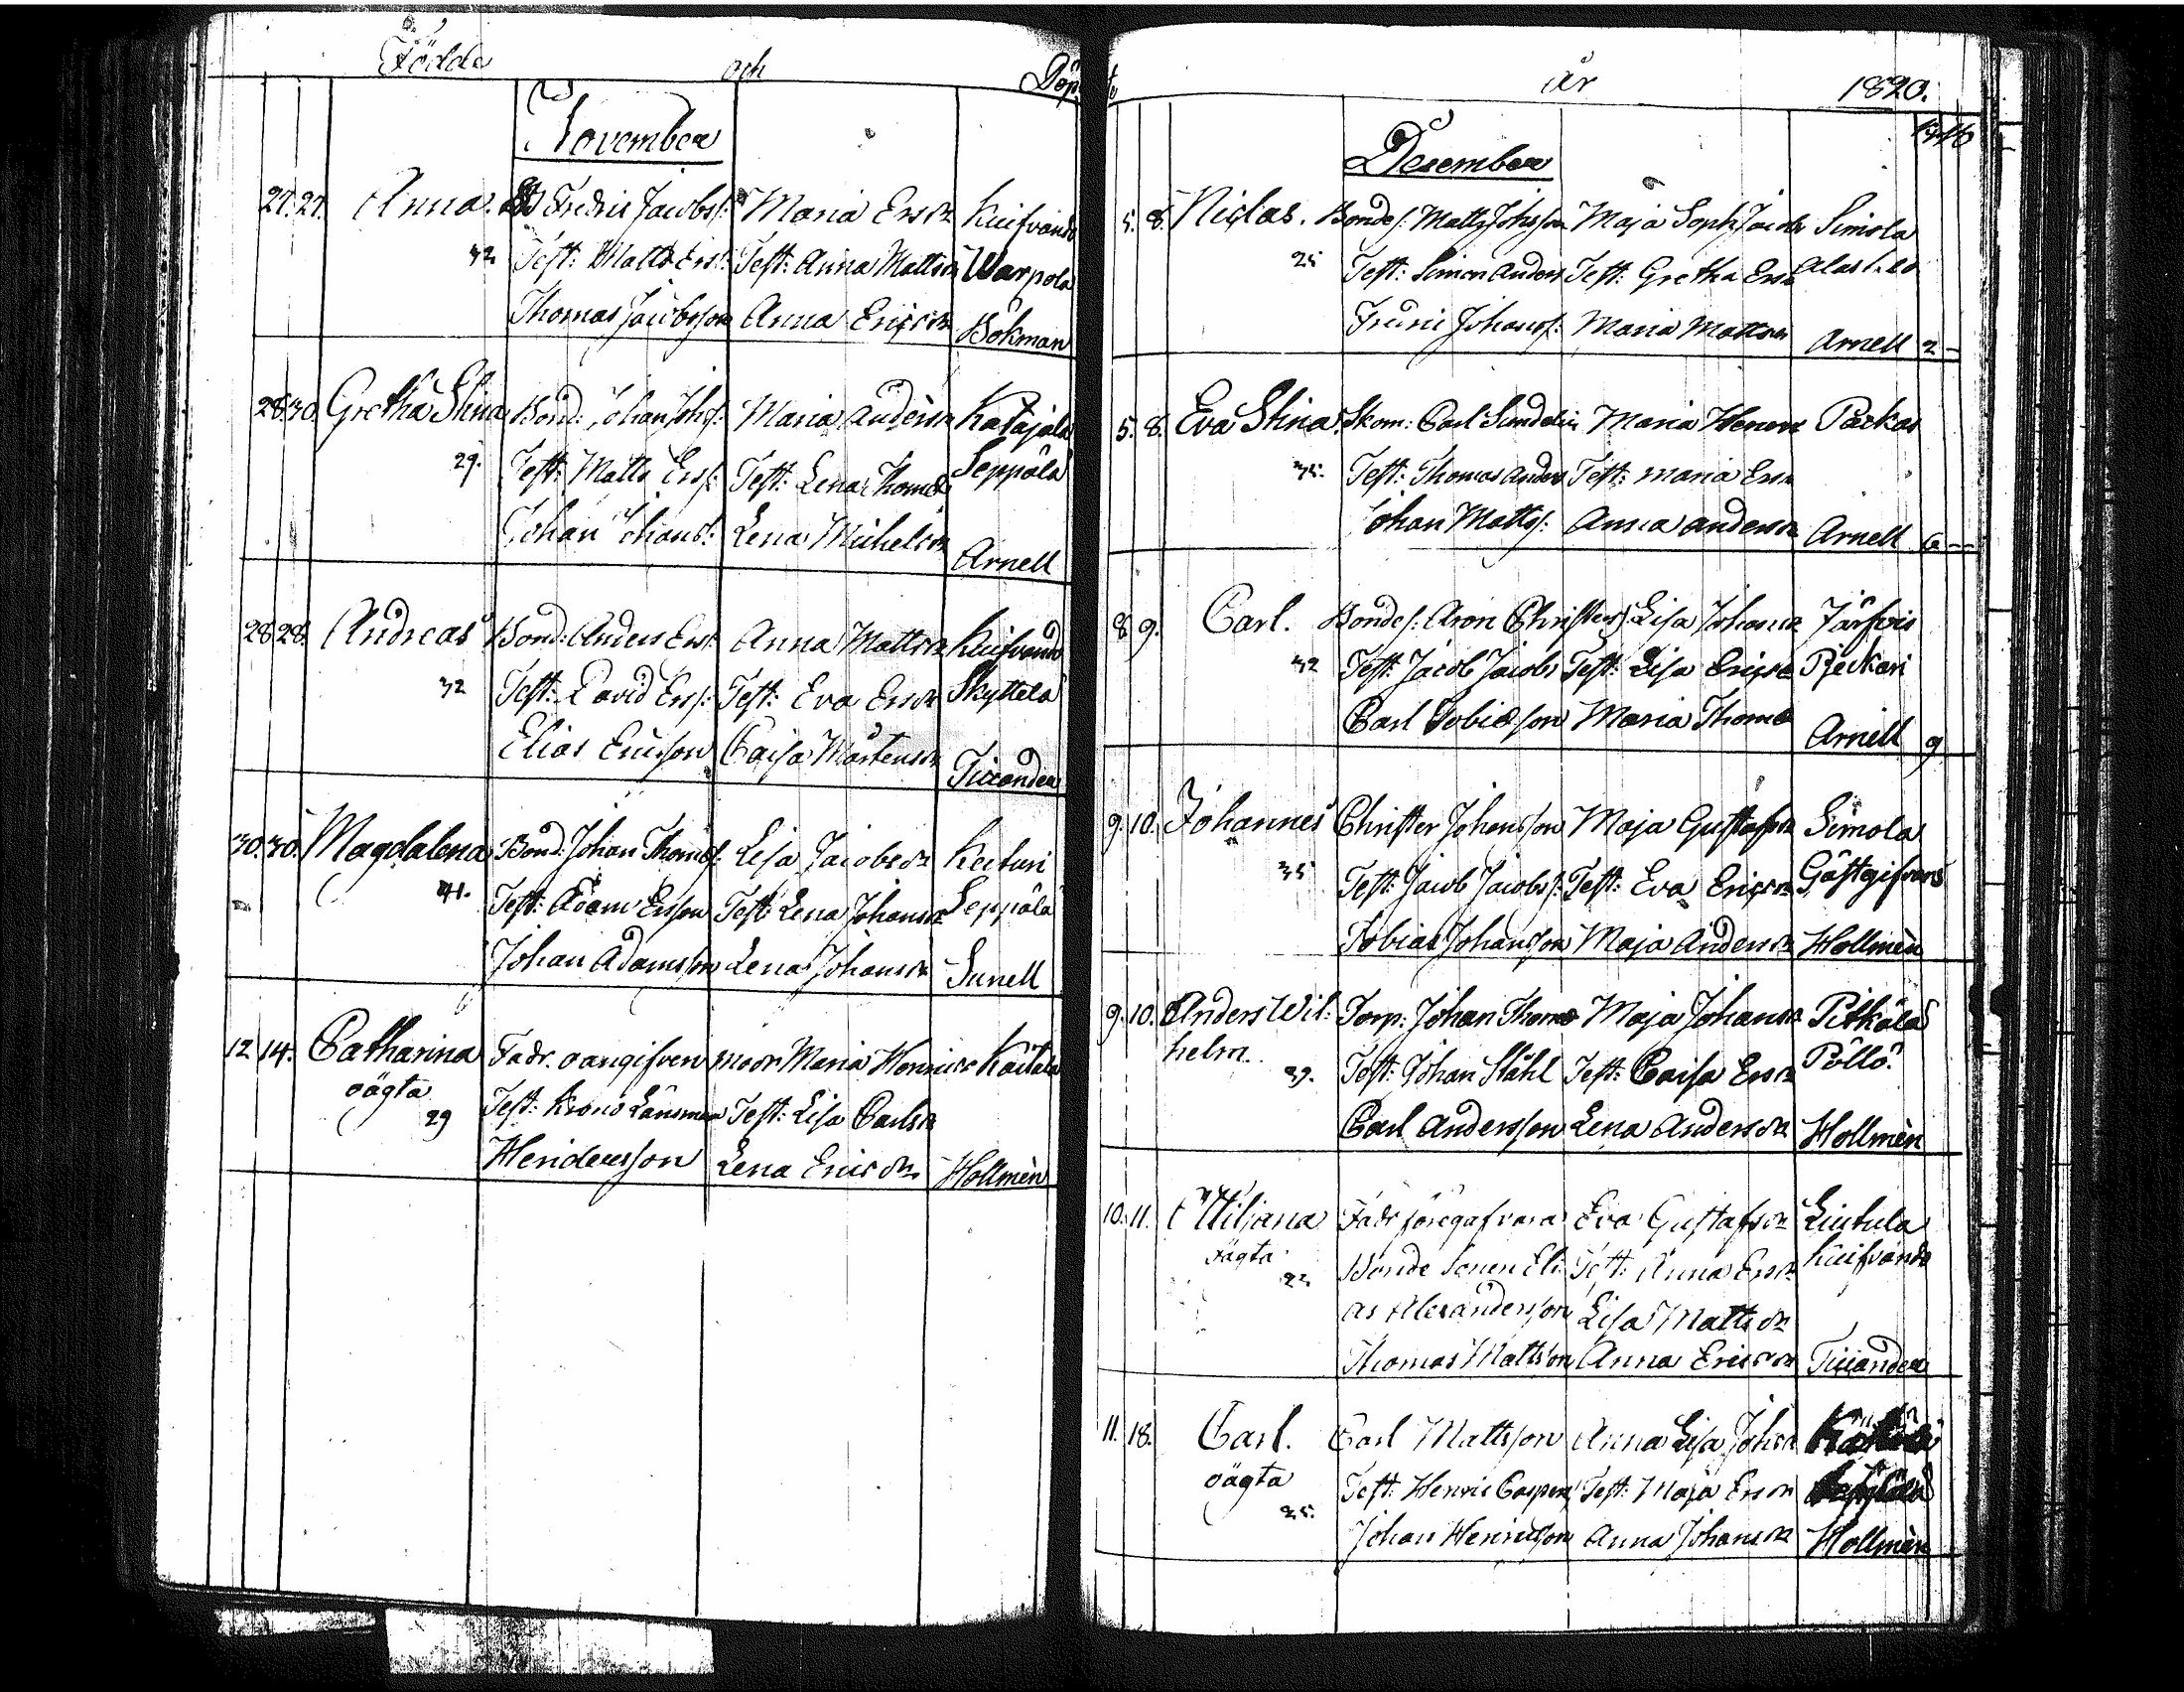 Födde och Döpte
November
27. 27. Anna. Bd Fredric Jacobs/: Maria Ersdr Kuifvando
32 Test: Matts Ers/: Test: Anna Mattsdr Warpola
Thomas Jacobsson Anna Ericsdr Bökman
28 30. Gretha Stina Bond: Johan Johs/: Maria Andersdr Katajala
29. Test: Matts Ers/: Test: Lena Thomd: Seppälä
Johan Johans/: Lena Michelsdr Arnell
28 28. Andreas Bond: Anders Ers/: Anna Mattsdr Kuifvando
32 Test: David Ers/: Test: Eva Ersdr Skyttelä
Elias Ericsson Caisa Mårtensdr Ticcander
30. 30. Magdalena Bond: Johan Thoms/: Lisa Jacobsdr Keituri
41. Test: Adam Ersson Test: Lena Johansdr Seppälä
Johan Adamsson Lena Johansdr Sunell
12 14. Catharina Fadr. oangifven moor Maria Henricsdr Kaitala
oägta
29 Test: Krono Länsman Test: Lisa Carlsdr
Henricusson Lena Ericsdr. Hollmèn
år 1820.
December
5. 8. Niclas. Bonde/: Matts Johsson Maja Soph: Jacobs Simola
25 Test: Simon Anders Test: Gretha Ersdr Alastalo
Fredric Johans/: Maria Mattsdr Arnell 2-
5. 8. Eva Stina. Skom: Carl Sundelin Maria Henr Packas
35. Test: Thomas Anders Test: Maria Ersdr
Johan Matts/: Anna Andersdr Arnell 6-
8 9. Carl. Bonde/: Aron Christers/: Lisa Johansdr Järfvis
32 Test: Jacob Jacobs Test: Lisa Ericsd Pjeckari
Carl Tobiasson Maria Thomd Arnell 9
9. 10. Johannes Christer Johansson Maja Gustafsdr Simola
35 Test: Jacob Jacobs/: Test: Eva Ericsdr Gästgifvars
Tobias Johansson Maja Andersdr Hollmèn
9. 10. Anders Wil: Torp: Johan Thoms Maja Johansdr Pitkälä
helm. 39. Test: Johan Ståhl Test: Caisa Ersdr Pöllö.
Carl Andersson Lena Andersdr Hollmèn
10. 11. Uliana Fadr föregafvara Eva Gustafsdr Liutula
oägta
22 Bonde Sonen Eli Test: Anna Ersdr Kuifvando
as Alexandersson Lisa Mattsdr
Thomas Mattsson Anna Ericsdr Ticcander
11. 18. Carl. Carl Mattsson Anna Lisa Johsdr
oägta
25. Test: Henric Caspers Test: Maja Ersdr
Johan Henricsson Anna Johansdr Hollmèn